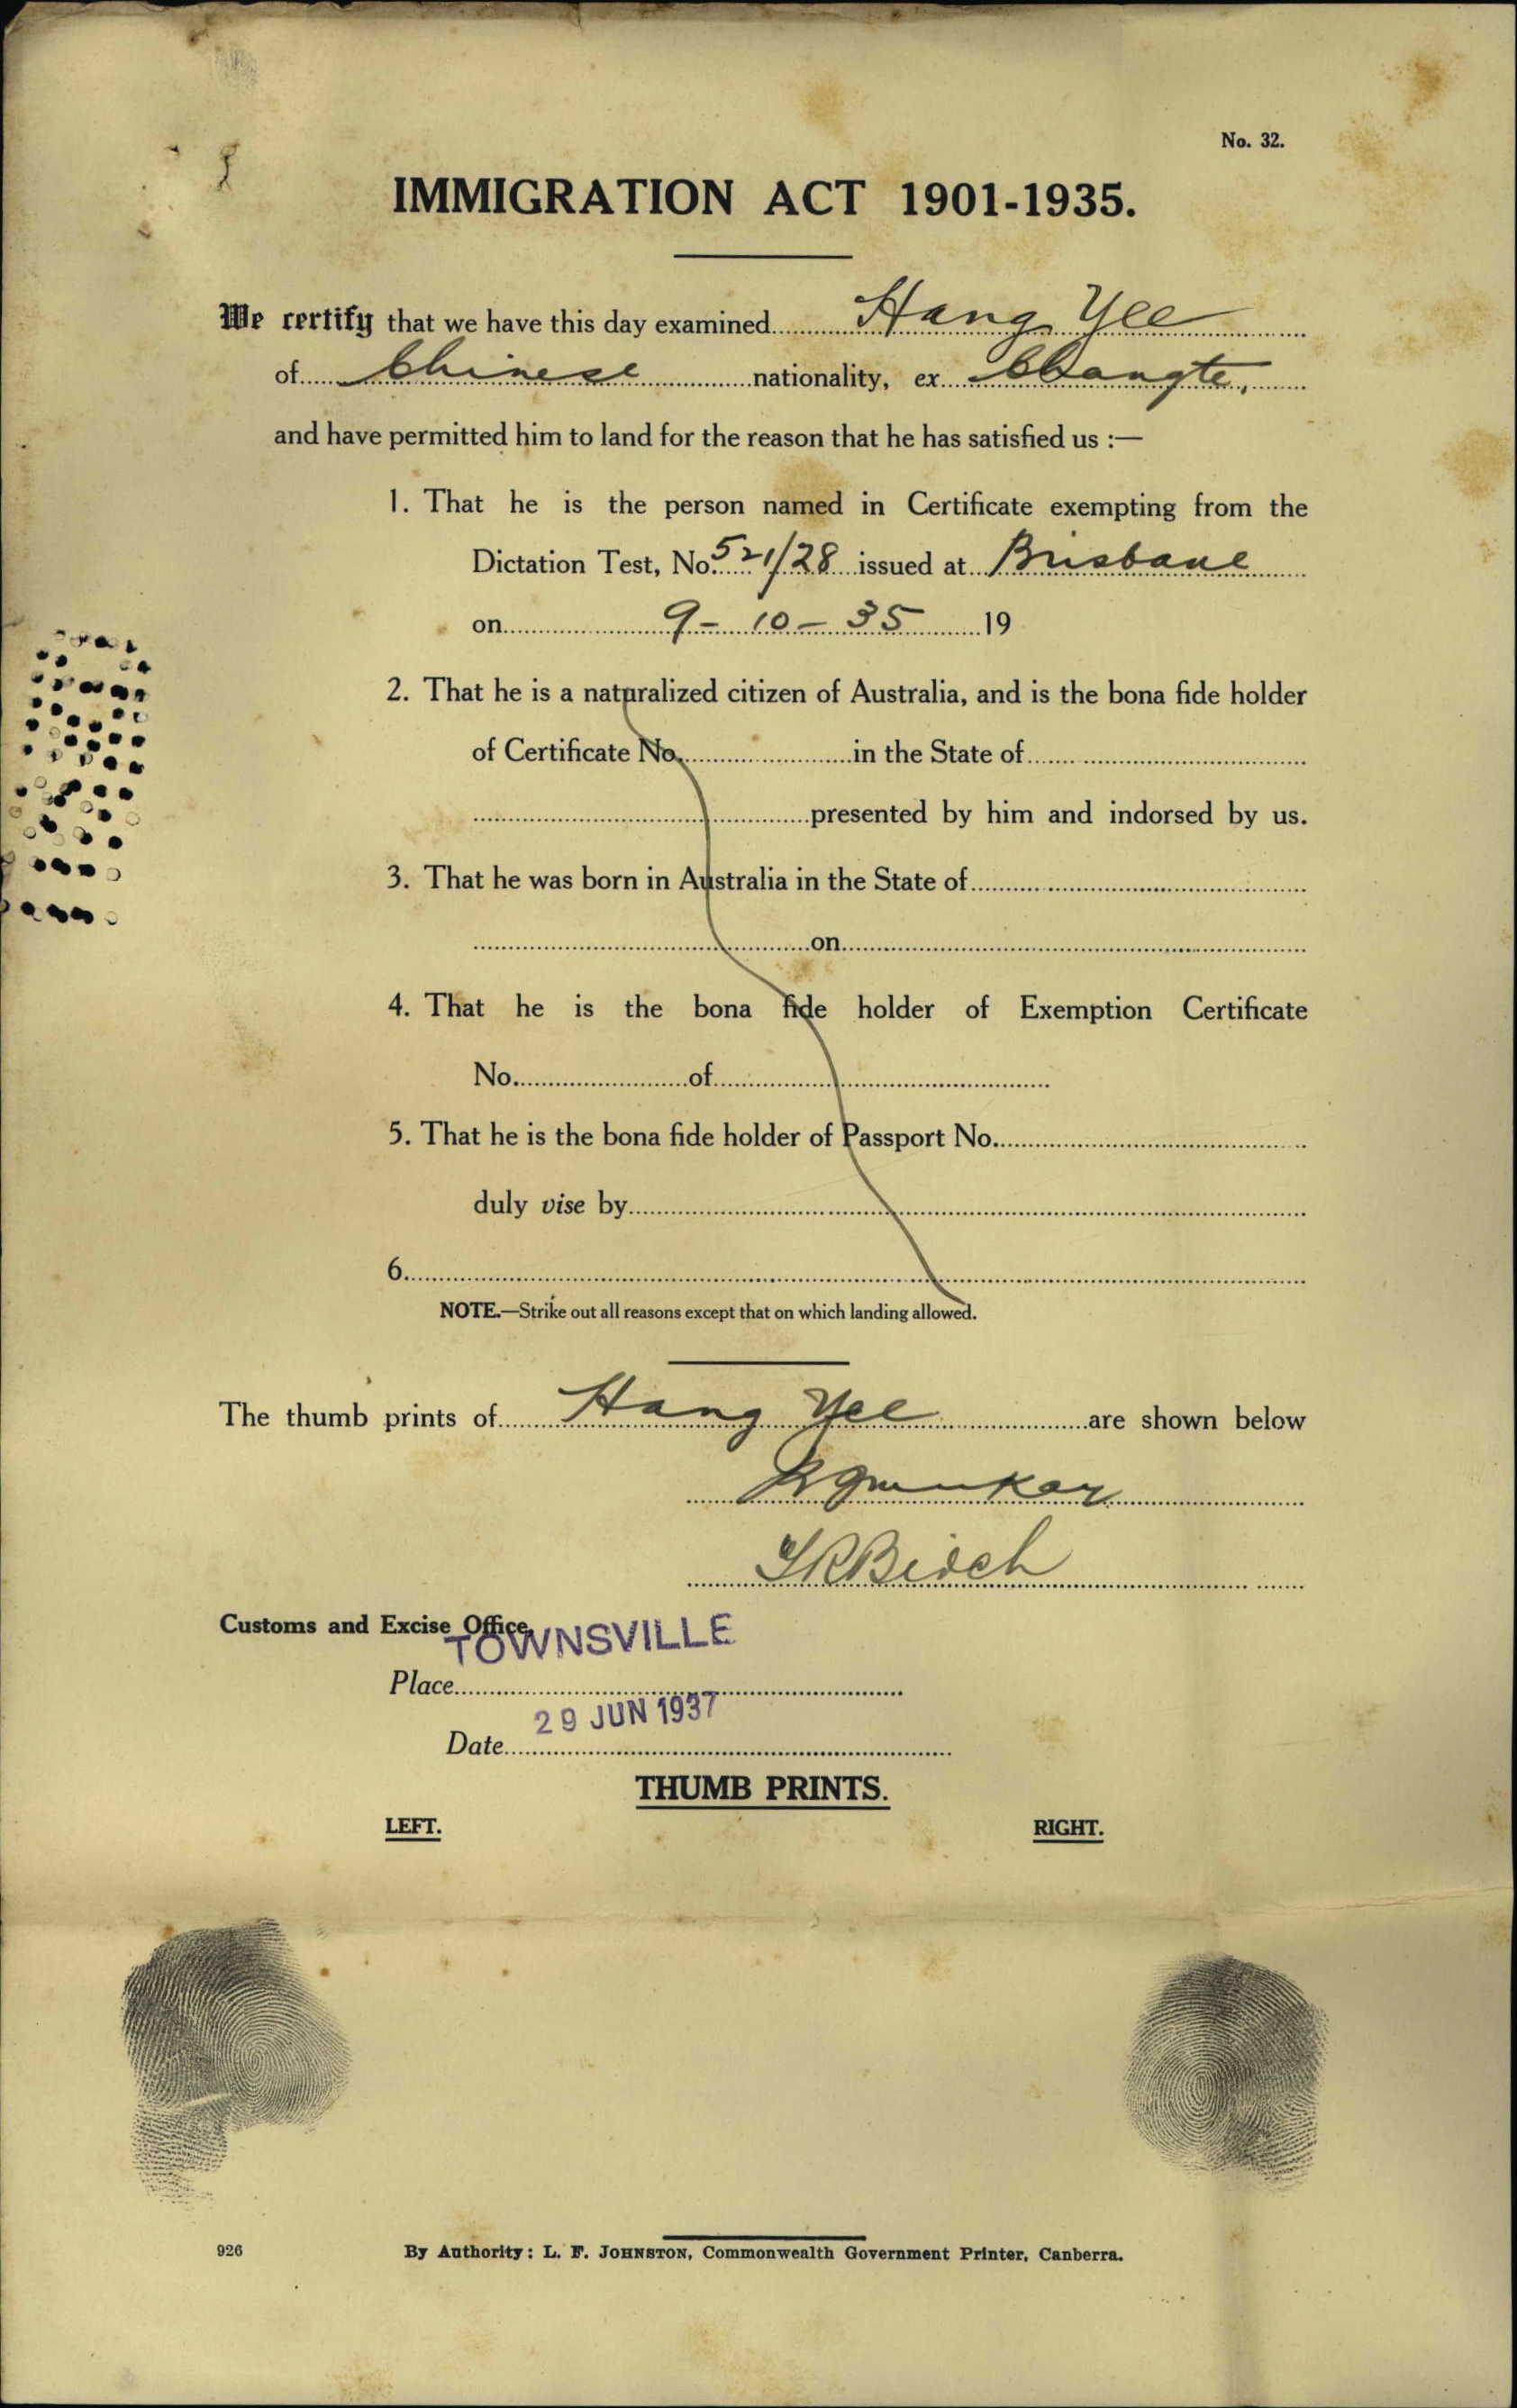 No. 32.
IMMIGRATION ACT 1901-1935.
We certify that we have this day examined Hang Yee
of Chinese nationality, ex Changte,
and have permitted him to land for the reason that he has satisfied us :—
1. That he is the person named in Certificate exempting from the
Dictation Test, No. 521/28 issued at Brisbane
on 9-10-35 19
2. That he is a naturalized citizen of Australia, and is the bona fide holder
of Certificate No. in the State of
presented by him and indorsed by us.
3. That he was born in Australia in the State of
on
4. That he is the bona fide holder of Exemption Certificate
No. of
5. That he is the bona fide holder of Passport No.
duly vise by
6.
NOTE.—Strike out all reasons except that on which landing allowed.
The thumb prints of Hang Yee are shown below
Birch
Customs and Excise Office,
TOWNSVILLE
Place
29 JUN 1937
Date
THUMB PRINTS.
LEFT. RIGHT.
926 By Authority: L. F. JOHNSTON, Commonwealth Government Printer, Canberra.